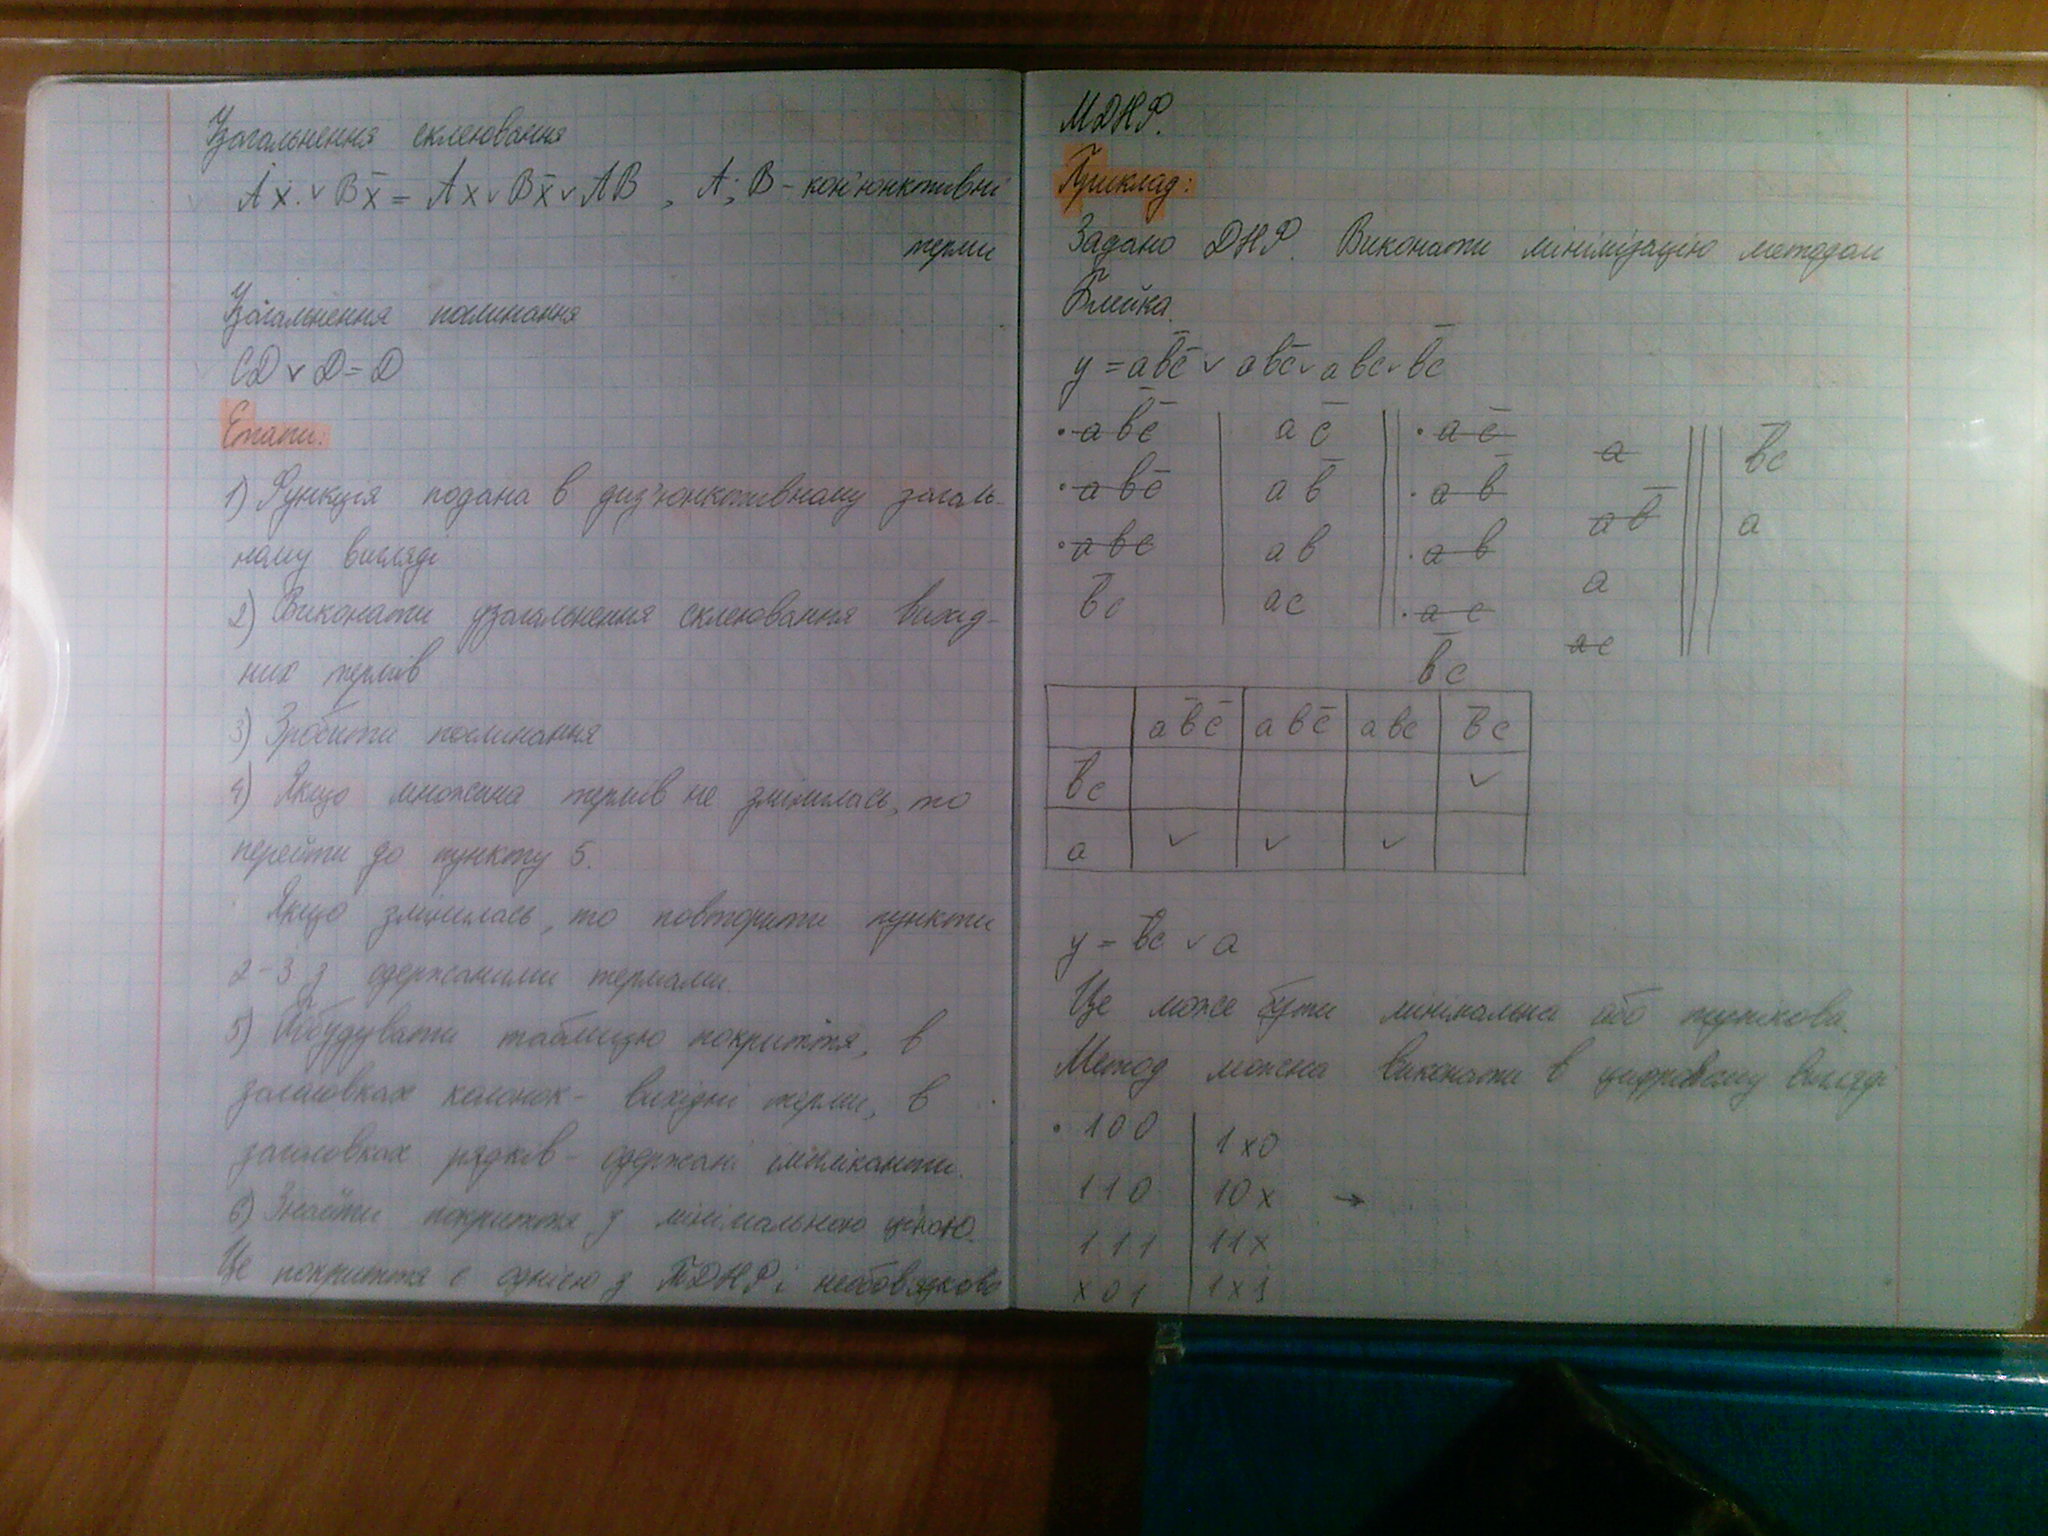 Узагальнення склеювання
Ax ∨ Bx̄ = Ax ∨ Bx̄ ∨ AB , A; B – кон'юнктивні
терми
Узагальнення поглинання
CD ∨ D = D
Етапи:
1) Функція подана в диз'юнктивному загаль-
ному вигляді
2) Виконати узагальнення склеювання вихід-
них термів
3) Зробити поглинання
4) Якщо множина термів не змінилась, то
перейти до пункту 5.
Якщо змінилась, то повторити пункти
2-3 з одержаними термами.
5) Побудувати таблицю покриття, в
заголовках колонок – вихідні терми, в
заголовках рядків – одержані імпліканти.
6) Знайти покриття з мінімальною ціною.
Це покриття є однією з ТДНФ і необов'язково
МДНФ.
Приклад:
Задано ДНФ. Виконати мінімізацію методом
Блейка.
y = ab̄c̄ ∨ abc̄ ∨ abc ∨ b̄c
· ab̄c̄ | ac̄ || · ac̄ a ||| b̄c
· abc̄ | ab̄ || · ab̄ ab̄ ||| a
· abc | ab || · ab a
b̄c | ac || · ac ac
b̄c
ab̄c̄ | abc̄ | abc | b̄c
b̄c | | | | ✓
a | ✓ | ✓ | ✓ |
y = b̄c ∨ a
Це може бути мінімальна або тупікова.
Метод можна виконати в цифровому вигляді
· 100 | 1x0
110 | 10x →
111 | 11x
x01 | 1x1